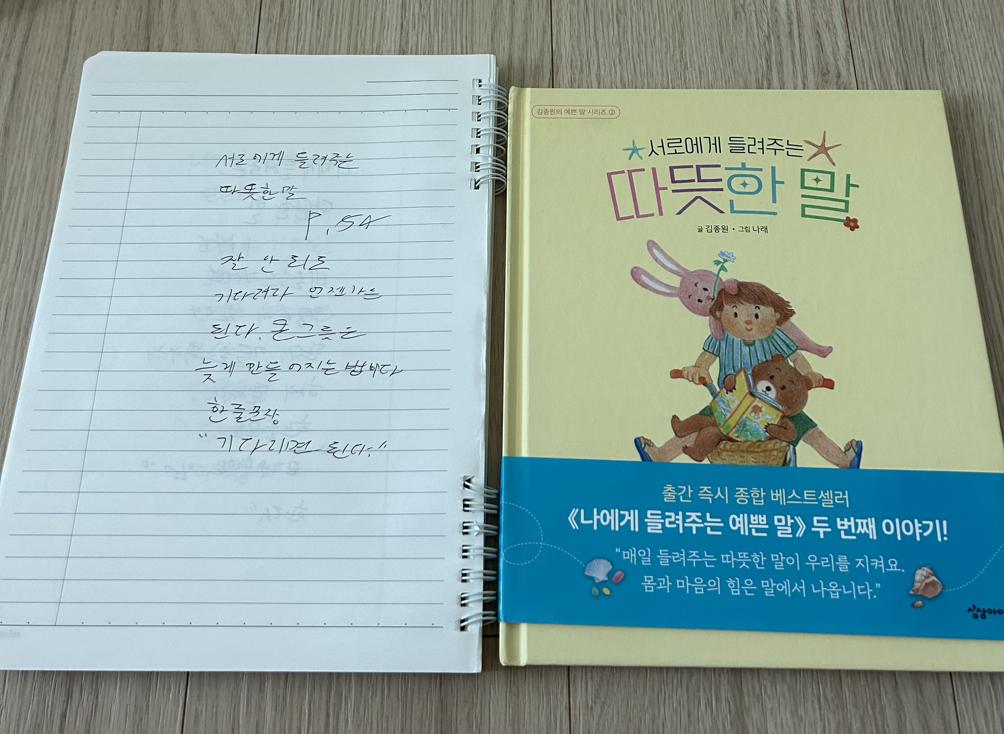 서로에게 들려주는
따뜻한 말
P. 54
잘 안 되도
기다려라 언젠가는
된다. 큰 그릇은
늦게 만들어지는 법이다
한줄프장
"기다리면 된다."
김종원의 예쁜 말 시리즈 ②
서로에게 들려주는
따뜻한 말
글 김종원 · 그림 나래
출간 즉시 종합 베스트셀러
《나에게 들려주는 예쁜 말》 두 번째 이야기!
"매일 들려주는 따뜻한 말이 우리를 지켜요.
몸과 마음의 힘은 말에서 나옵니다."
상상아이